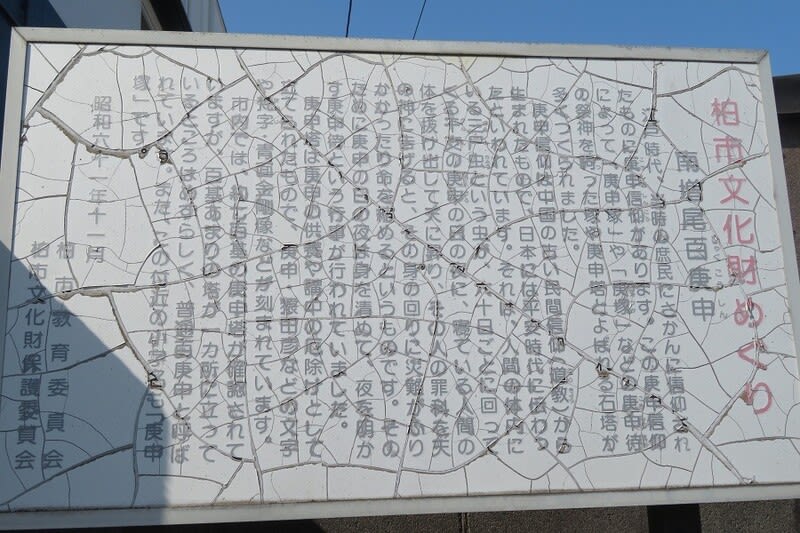 柏市文化財めぐり
南増尾百庚申
江戸時代、当時の庶民にさかんに信仰され
たものに庚申信仰があります。この庚申信仰
によって、「庚申塚」や「」など、庚申待
の祭神を祭った塚や庚申塔とよばれる石塔が
多くつくられました。
庚申信仰は中国の古い民間信仰（道教）から
生まれたもので、日本には平安時代に伝わっ
たといわれています。それは、人間の体内に
いる三尸虫という虫が、六十日ごとに回って
くる十干の庚申の日の夜に、寝ている人間の
体を抜け出して天に昇り、その人の罪科を天
の神に告げると、その人の身の回りに災難がふり
かかったり命を縮めるというものです。その
ために庚申の日の夜は身を清めて、夜を明か
す庚申待という行事が行われていました。
庚申塔は庚申の供養や講中の厄除けとして
立てられたもので、庚申、猿田彦などの文字
や梵字、青面金剛像などが刻まれています。
市内では、約七百基の庚申塔が確認されて
いますが、百基あまりの塔が一カ所に立って
いるところはめずらしく、普通百庚申と呼ば
れています。また、この付近の小字名も「庚申
塚」です。
昭和六十一年十一月
柏市教育委員会
柏市文化財保護委員会